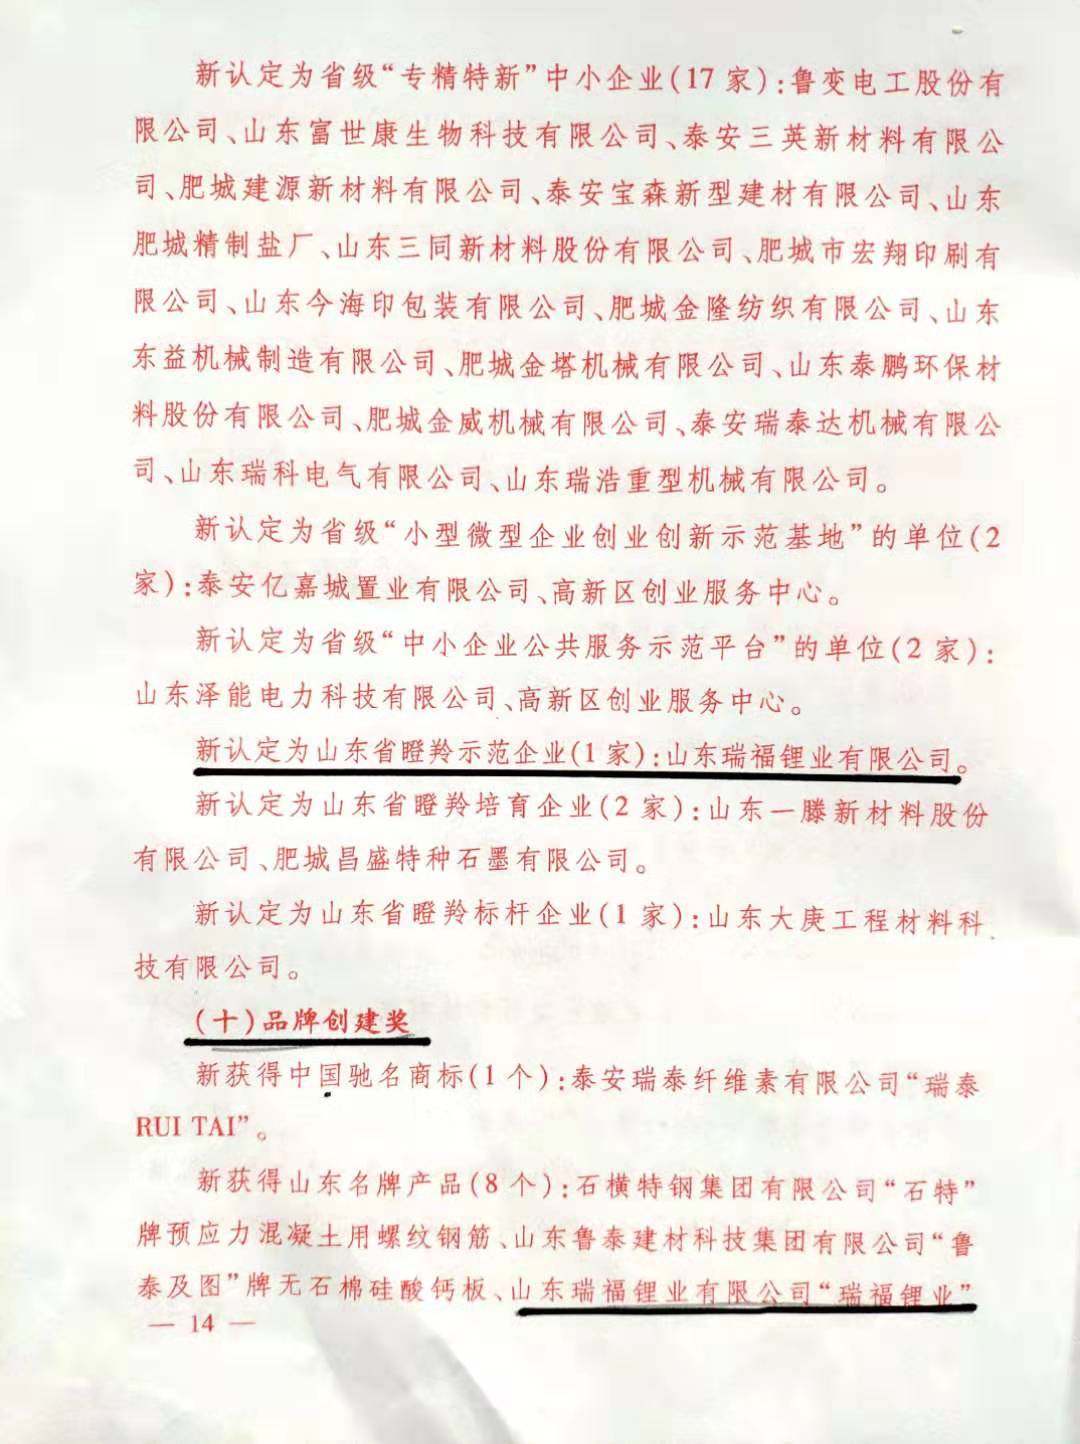 新认定为省级“专精特新”中小企业(17家):鲁变电工股份有
限公司、山东富世康生物科技有限公司、泰安三英新材料有限公
司、肥城建源新材料有限公司、泰安宝森新型建材有限公司、山东
肥城精制盐厂、山东三同新材料股份有限公司、肥城市宏翔印刷有
限公司、山东今海印包装有限公司、肥城金隆纺织有限公司、山东
东益机械制造有限公司、肥城金塔机械有限公司、山东泰鹏环保材
料股份有限公司、肥城金威机械有限公司、泰安瑞泰达机械有限公
司、山东瑞科电气有限公司、山东瑞浩重型机械有限公司。
新认定为省级“小型微型企业创业创新示范基地”的单位(2
家):泰安亿嘉城置业有限公司、高新区创业服务中心。
新认定为省级“中小企业公共服务示范平台”的单位(2家):
山东泽能电力科技有限公司、高新区创业服务中心。
新认定为山东省瞪羚示范企业(1家):山东瑞福锂业有限公司。
新认定为山东省瞪羚培育企业(2家):山东一滕新材料股份
有限公司、肥城昌盛特种石墨有限公司。
新认定为山东省瞪羚标杆企业(1家):山东大庚工程材料科
技有限公司。
(十)品牌创建奖
新获得中国驰名商标(1个):泰安瑞泰纤维素有限公司“瑞泰
RUI TAI”。
新获得山东名牌产品(8个):石横特钢集团有限公司“石特”
牌预应力混凝土用螺纹钢筋、山东鲁泰建材科技集团有限公司“鲁
泰及图”牌无石棉硅酸钙板、山东瑞福锂业有限公司“瑞福锂业”
— 14 —